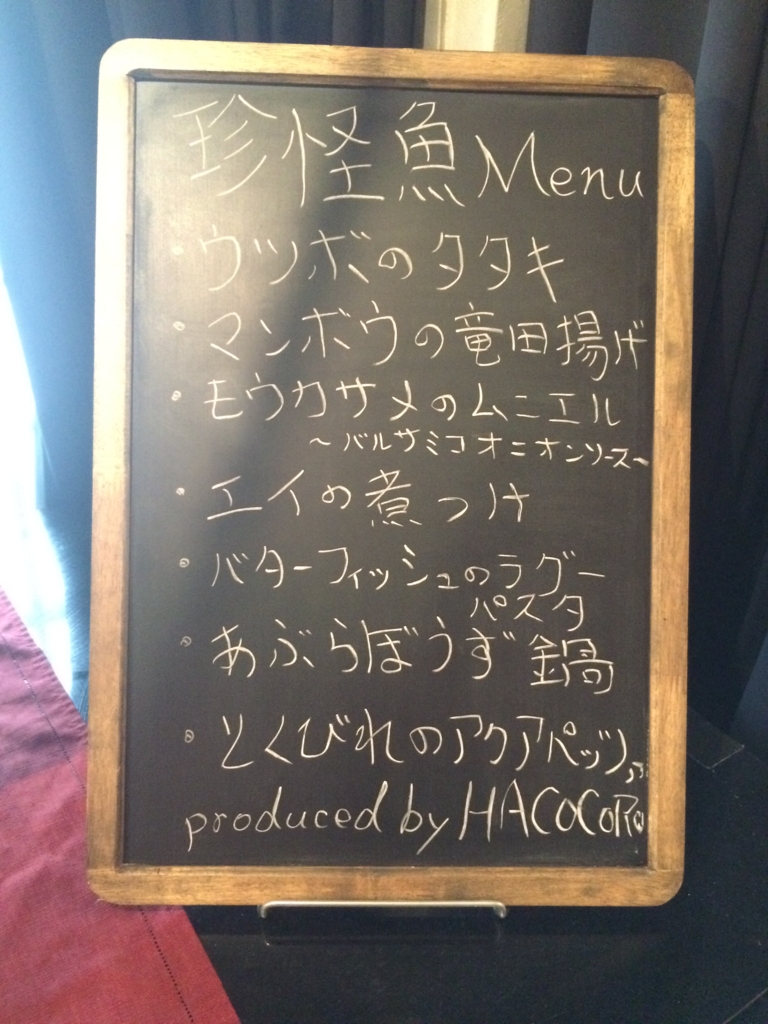 珍怪魚Menu
・ウツボのタタキ
・マンボウの竜田揚げ
・モウカサメのムニエル
～バルサミコオニオンソース～
・エイの煮つけ
・バターフィッシュのラグー
パスタ
・あぶらぼうず鍋
・とくびれのアクアパッツァ
produced by